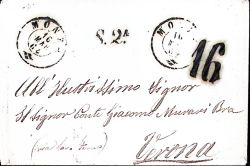 MON
16
MAG
MON
16
S. 2ª
16
All' Illustrissimo Signor
Il Signor Conte Giacomo Murari Bra
Verona